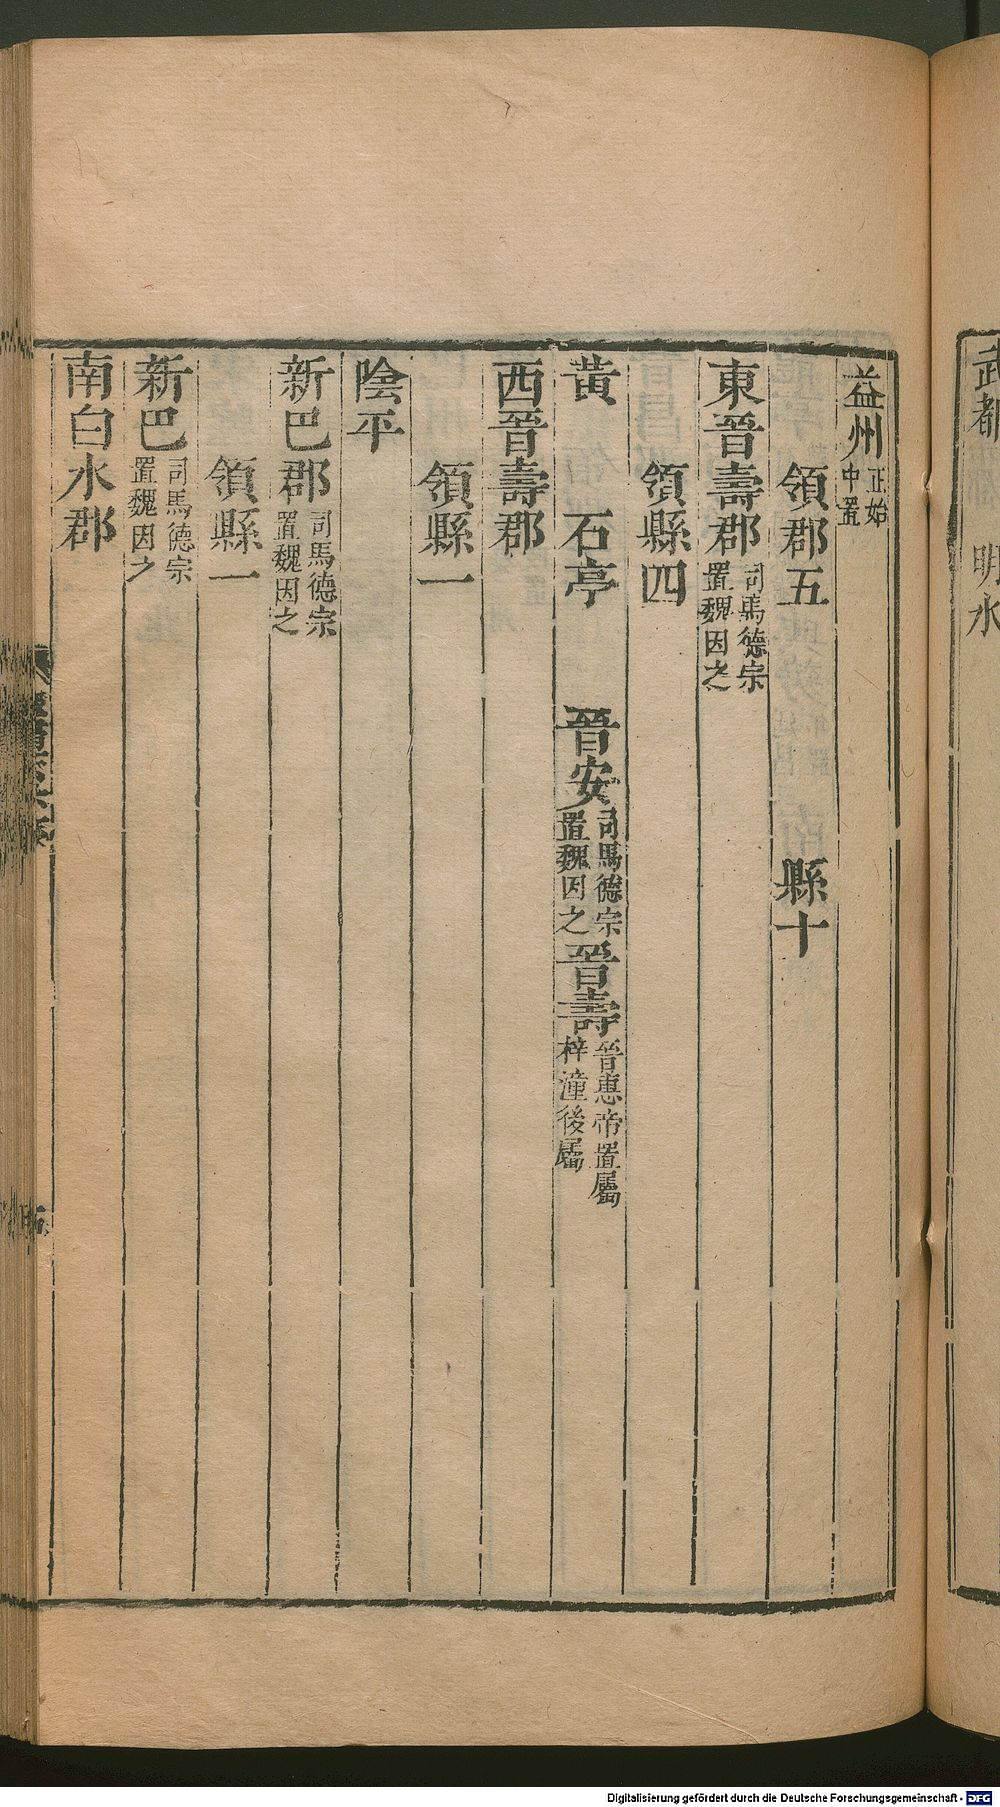 武都 明水
益州正始中置
領郡五 縣十
東晉壽郡司馬德宗置魏因之
領縣四
黃 石亭 晉安司馬德宗置魏因之晉壽晉惠帝置屬梓潼後屬
西晉壽郡
領縣一
陰平
新巴郡司馬德宗置魏因之
領縣一
新巴司馬德宗置魏因之
南白水郡
Digitalisierung gefördert durch die Deutsche Forschungsgemeinschaft - DFG